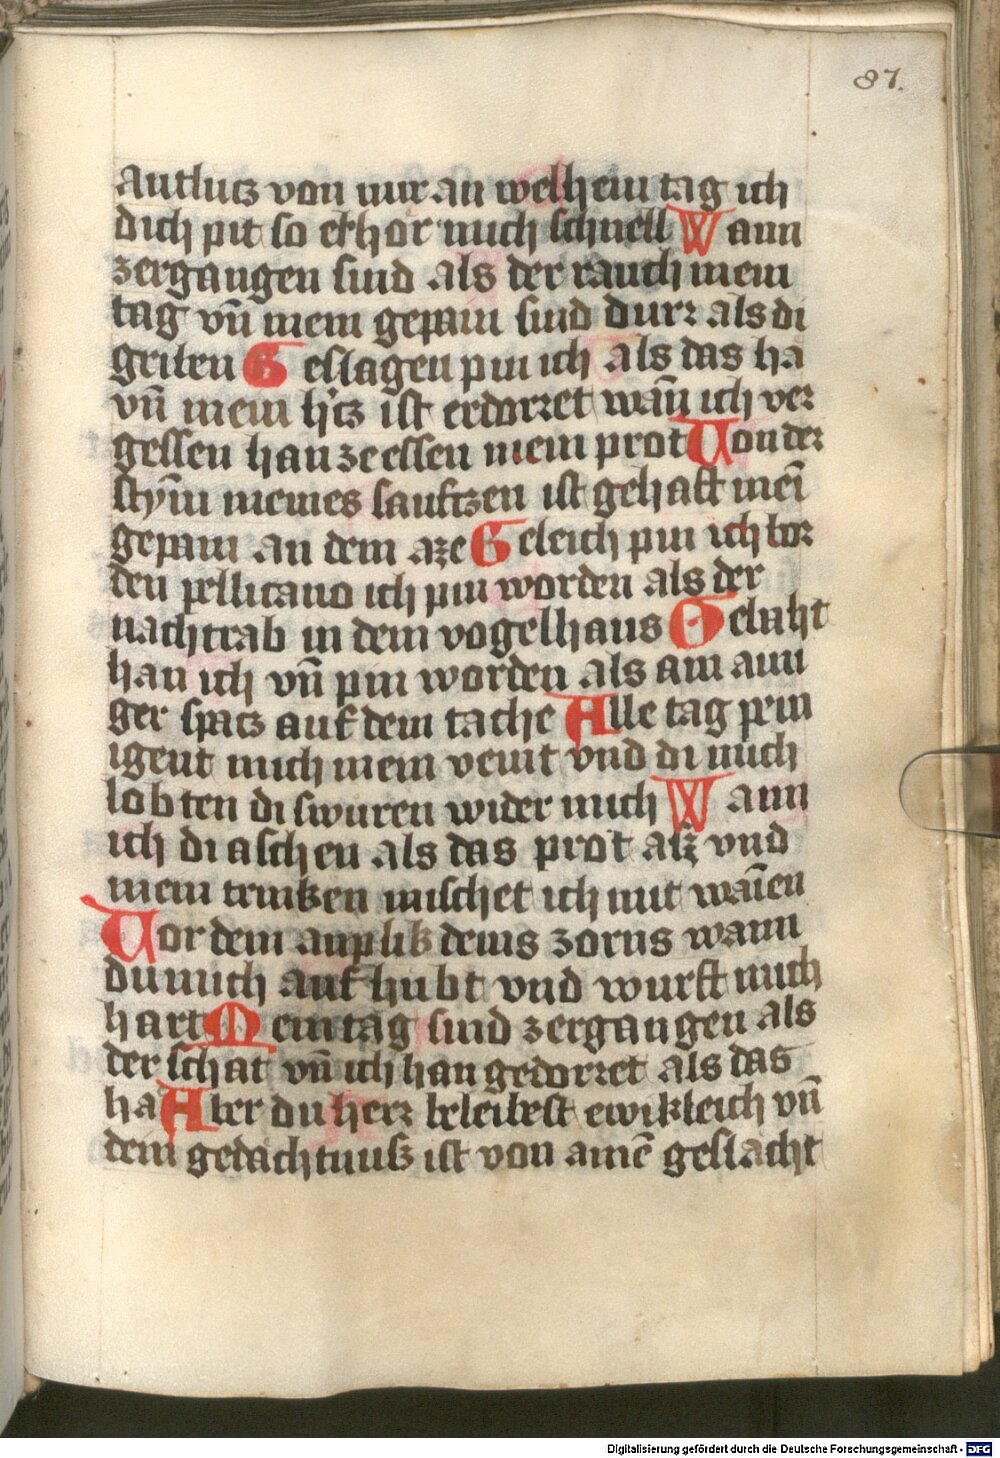 87.
antlutz von mir An welhem tag ich
dich pit so erhör mich schnell Wann
zergangen sind als der rauch mein
tag vn̄ mein gepain sind durr als di
griben Geslagen pin ich als das ha
vn̄ mein h'tz ist erdorret wān ich ver
gessen han ze essen mein prot Von der
stym̄ meines sauftzen ist gehaft mēi
gepain an dem aze Geleich pin ich wor
den pellicano ich pin worden als der
nachtrab in dem vogelhaus Gelaht
han ich vn̄ pin worden als ain ain
ger spatz auf dem tache Alle tag pein
igent mich mein veint vnd di mich
lobten di swuren wider mich Wann
ich di aschen als das prot aiz vnd
mein trinken mischet ich mit wāien
Vor dem anplik deins zorns wann
du mich auf hubt vnd wurft mich
hart Mein tag sind zergangen als
der schat vn̄ ich han gedorret als das
ha Aber du herr beleibest ewikleich vn̄
dein gedächtnuß ist von ainē geslächt
Digitalisierung gefördert durch die Deutsche Forschungsgemeinschaft - DFG